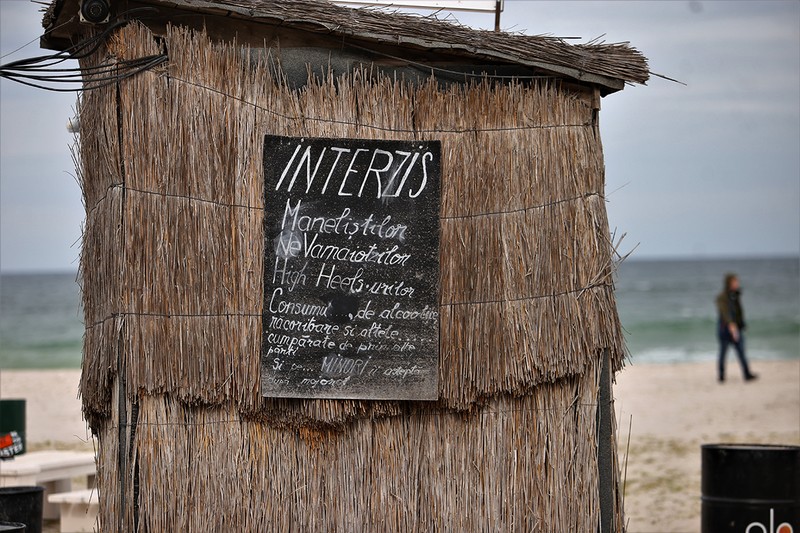 INTERZIS
Maneliștilor
NeVamaioților
High Heels-urilor
Consumul de alcoolice
racoritoare și altele
cumparate de prin alte
parti
Și MINORI ii așteptam
majorat